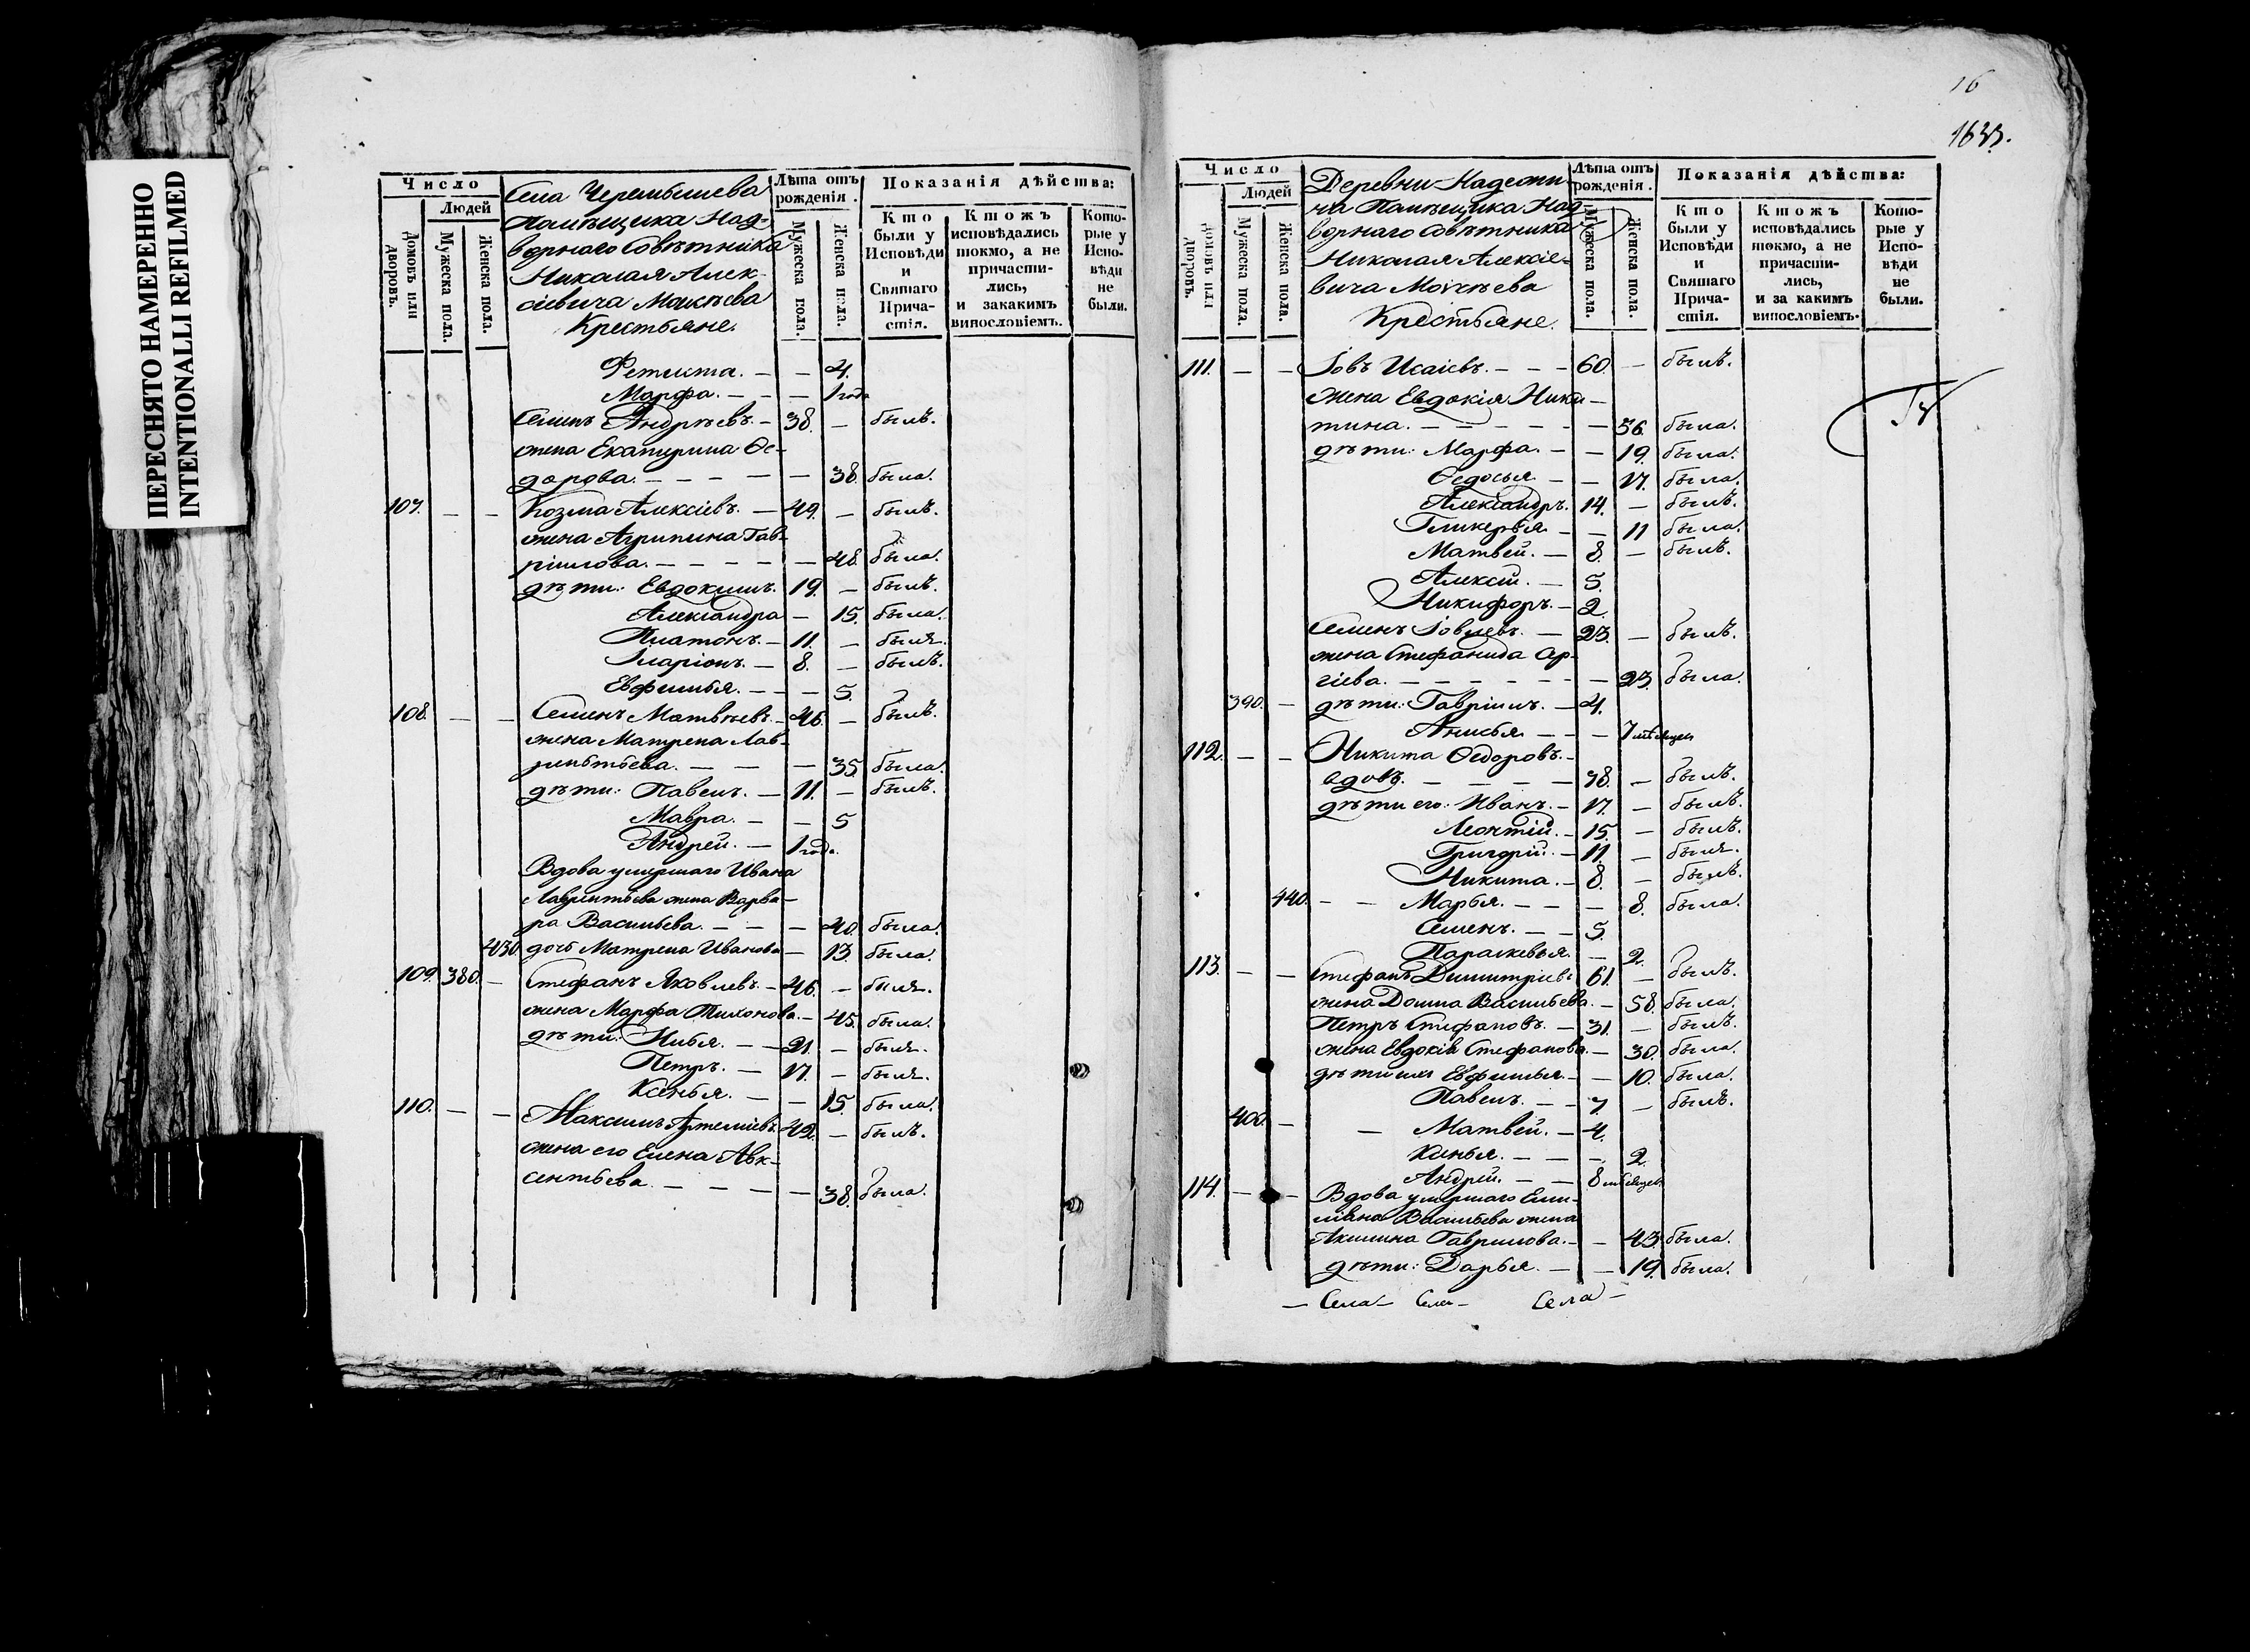 ПЕРЕСНЯТО НАМЕРЕННО
INTENTIONALLI REFILMED
Число
Людей
Домовъ или дворовъ.
Мужеска пола.
Женска пола.
Села Черемышева
Помѣщика Над-
ворнаго Совѣтника
Николая Алек-
сіевича Мокѣева
Крестьяне.
Лѣта отъ рожденія.
Мужеска пола.
Женска пола.
Показанія дѣйства:
Кто были у Исповѣди и Святаго Прича-стія.
Ктожъ исповѣдались токмо, а не причасти-лись, и закакимъ винословіемъ.
Кото-рые у Испо-вѣди не были.
Фетиста. — — 4.
Марфа. — — — 1 года
Семинъ Андрѣевъ. — 38. — былъ.
жена Екатерина Ѳе-
дорова. — — — — — 38. была.
107. — — Козма Алексіевъ. — 49. — былъ.
жена Агрипина Гав-
ріилова. — — — — — 48. была.
дѣти: Евдокимъ. 19. — былъ.
Александра — 15. была.
Платонъ. — 11. — былъ.
Иларіонъ. — 8. — былъ.
Евфимья. — — — 5.
108. — — Семенъ Матвѣевъ. — 46. — былъ.
жена Матрена Лав-
рентьева. — — — — 35. была.
дѣти: Павелъ. — 11. — былъ.
Мавра. — — 5
Андрей. — 1 года.
Вдова умершаго Ивана
Лаврентьева жена Варва-
ра Васильева. — — — 40. была.
430. дочь Матрена Иванова — 13. была.
109. 380. — Стефанъ Яковлевъ. — 46. — былъ.
жена Марфа Тихонова. — 45. была.
дѣти: — — 21. — былъ.
Петръ. — 17. — былъ.
Ксенья. — — 15. была.
110. — — Максимъ Артеміевъ. 42. — былъ.
жена его Елена Авк-
сентьева. — — — — 38. была.
16
1633.
Число
Людей
Домовъ или дворовъ.
Мужеска пола.
Женска пола.
Деревни Надежди-
на Помѣщика Над-
ворнаго Совѣтника
Николая Алексіе-
вича Мокѣева
Крестьяне.
Лѣта отъ рожденія.
Мужеска пола.
Женска пола.
Показанія дѣйства:
Кто были у Исповѣди и Святаго Прича-стія.
Ктожъ исповѣдались токмо, а не причасти-лись, и за какимъ винословіемъ.
Кото-рые у Испо-вѣди не были.
111. — — Іовъ Исаіевъ. — — — 60. — былъ.
жена Евдокія Ники-
тина. — — — — — — 56. была.
дѣти: Марфа. — — 19. была.
Ѳедосья. — — 17. была.
Александръ. 14. — былъ.
Гликерья. — — 11 была.
Матвей. — 8. — былъ.
Алексій. — 5.
Никифоръ. — 2.
Семенъ Іовлевъ. — 23. — былъ.
жена Стефанида Ар-
гіева. — — — — — — — 23. была.
390. — дѣти: Гавріилъ. — 4.
Анисья. — — — 7 мѣсяцев
112. — — Никита Ѳедоровъ. —
вдовъ. — — — — 38. — былъ.
дѣти его: Иванъ. — 17. — былъ.
Леонтій. — 15. — былъ.
Григорій. — 11. — былъ.
Никита. — 8. — былъ.
440. — — Марья. — — — 8. была.
Семенъ. — — 5.
Параскевья. — 2.
113. — — Стефанъ Димитріевъ 61. — былъ.
жена Домна Васильева. — 58. была.
Петръ Стефановъ. — 31. — былъ.
жена Евдокія Стефанова. — 30. была.
дѣти ихъ Евфимья. — — 10. была.
Павелъ. — — 7. — былъ.
400. — — Матвей. — 4.
Ксенья. — — — 2.
Андрей. — — 8 мѣсяцев
114. — — Вдова умершаго Еме-
ліана Васильева жена
Акилина Гаврилова. — — 43. была.
дѣти: Дарья. — — 19. была.
— Села — Села — Села —